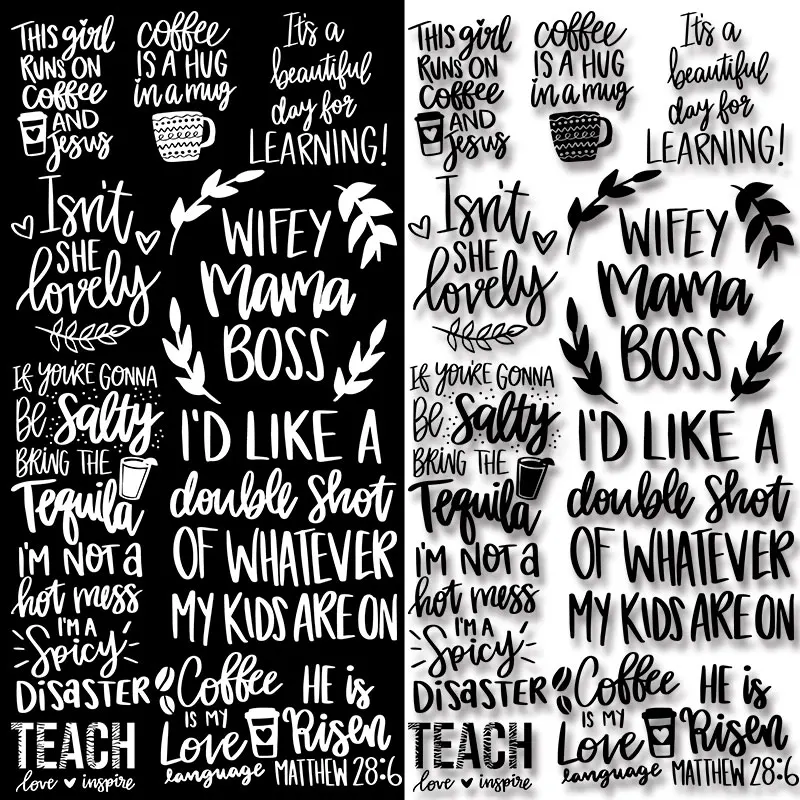 THIS girl
RUNS ON
Coffee
AND
Jesus
coffee
IS A HUG
in a mug
It's a
beautiful
day for
LEARNING!
Isn't
SHE
lovely
WIFEY
Mama
BOSS
IF YOU'RE GONNA
BE Salty
BRING THE
Tequila
I'D LIKE A
double shot
OF WHATEVER
MY KIDS ARE ON
I'M NOT a
hot mess
I'M A
Spicy
DISASTER
Coffee
IS MY
Love
language
HE is
Risen
MATTHEW 28:6
TEACH
love inspire
THIS girl
RUNS ON
Coffee
AND
Jesus
coffee
IS A HUG
in a mug
It's a
beautiful
day for
LEARNING!
Isn't
SHE
lovely
WIFEY
Mama
BOSS
IF YOU'RE GONNA
BE Salty
BRING THE
Tequila
I'D LIKE A
double shot
OF WHATEVER
MY KIDS ARE ON
I'M NOT a
hot mess
I'M A
Spicy
DISASTER
Coffee
IS MY
Love
language
HE is
Risen
MATTHEW 28:6
TEACH
love inspire